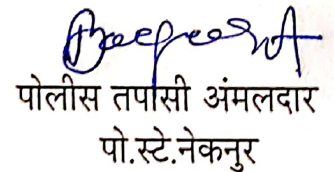 पोलीस तपासी अंमलदार
पो.स्टे.नेकनुर